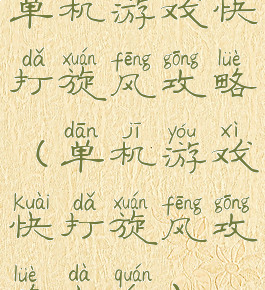 单机游戏快
dǎ xuán fēng gōng lüè
打旋风攻略
dān jī yóu xì
(单机游戏
kuài dǎ xuán fēng gōng
快打旋风攻
lüè dà quán